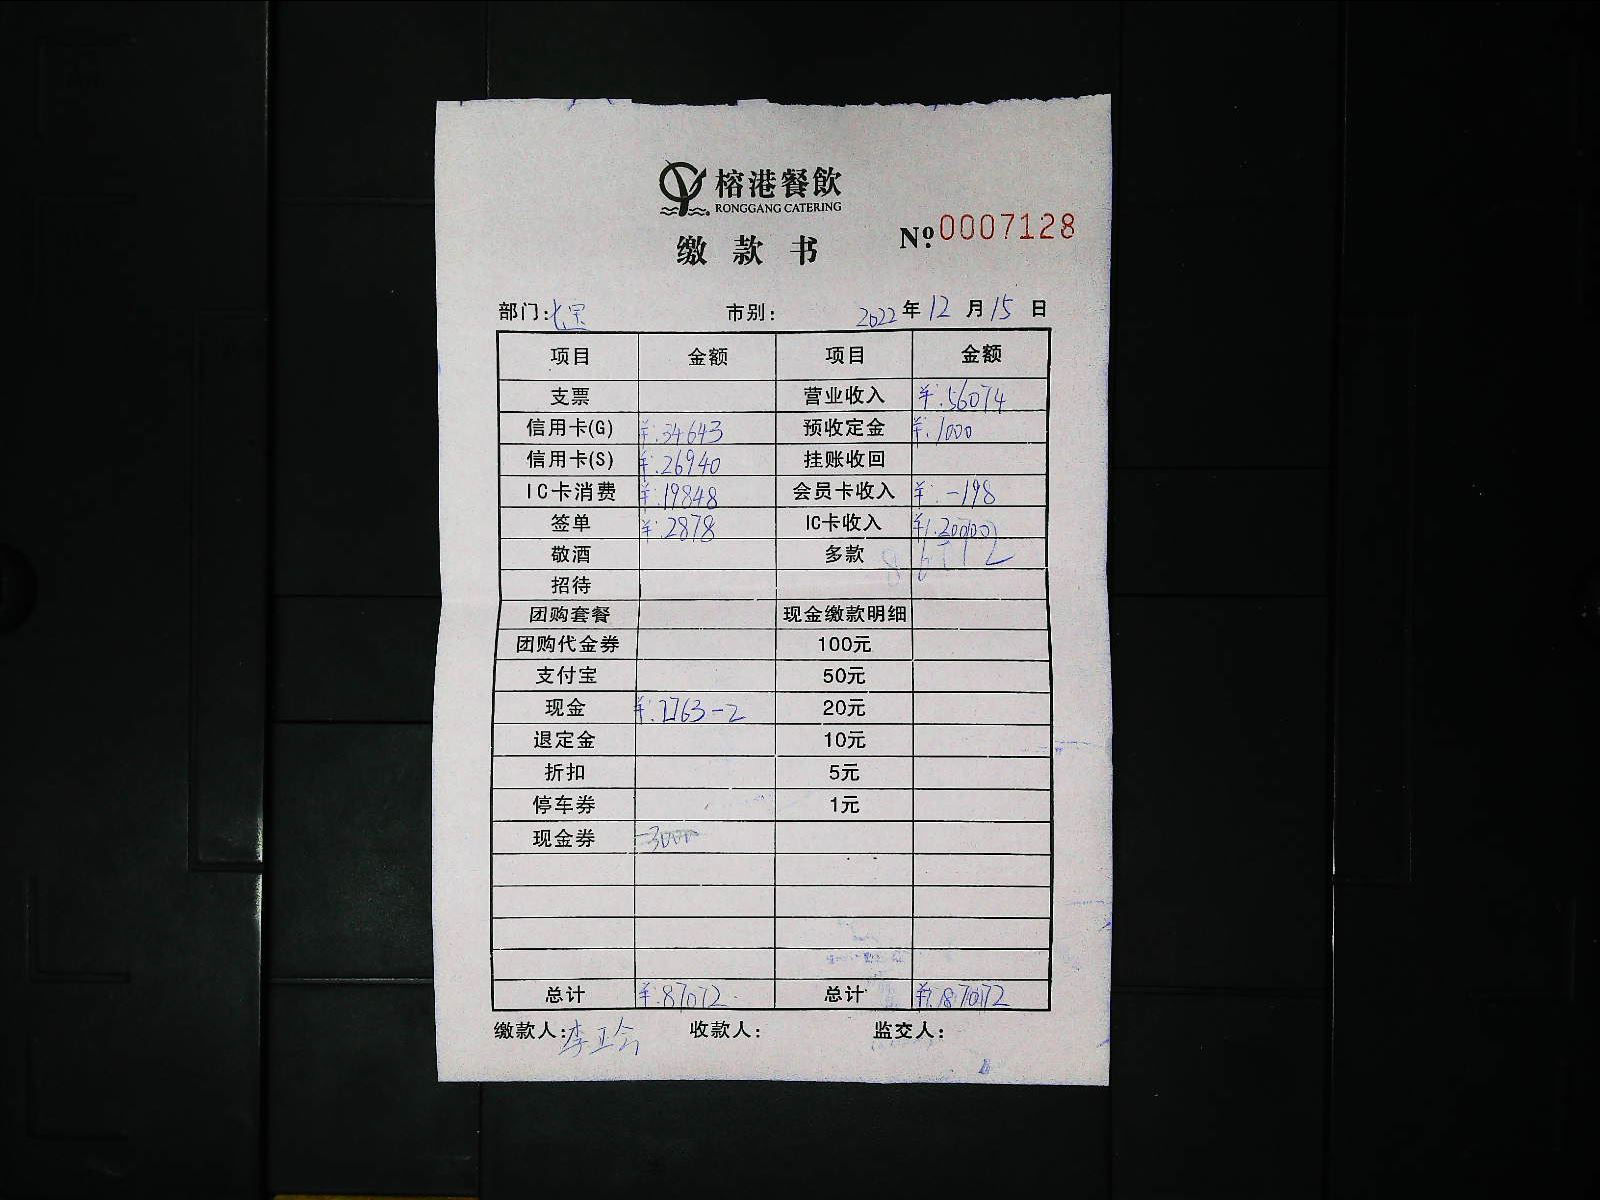 榕港餐飲
RONGGANG CATERING
缴款书
№:0007128
部门:七宝 市别: 2022年12月15日
项目 金额 项目 金额
支票 营业收入 ¥:56074
信用卡(G) ¥:34643 预收定金 ¥:1000
信用卡(S) ¥:26940 挂账收回
IC卡消费 ¥:19848 会员卡收入 ¥:-198
签单 ¥:2878 IC卡收入
敬酒 多款
招待
团购套餐 现金缴款明细
团购代金券 100元
支付宝 50元
现金 ¥:2763-2 20元
退定金 10元
折扣 5元
停车券 1元
现金券 3000
总计 ¥:87072 总计 ¥:87072
缴款人: 收款人: 监交人: